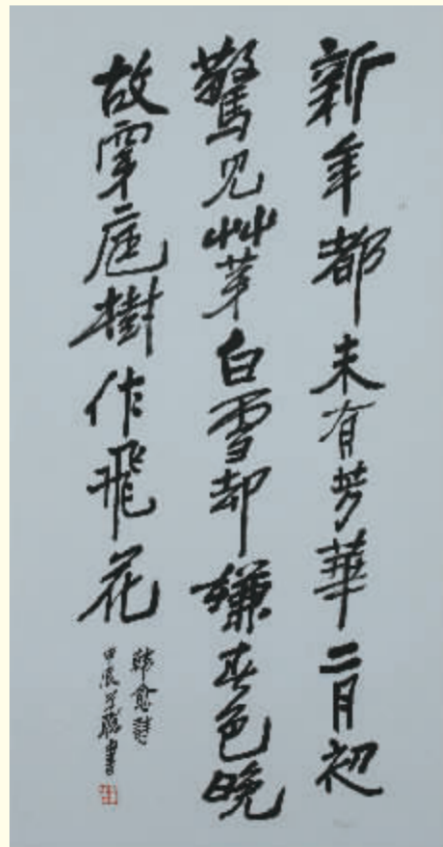 新年都未有芳華二月初
驚见艸芽白雪却嫌春色晚
故穿庭樹作飛花
韩愈詩
甲辰
書